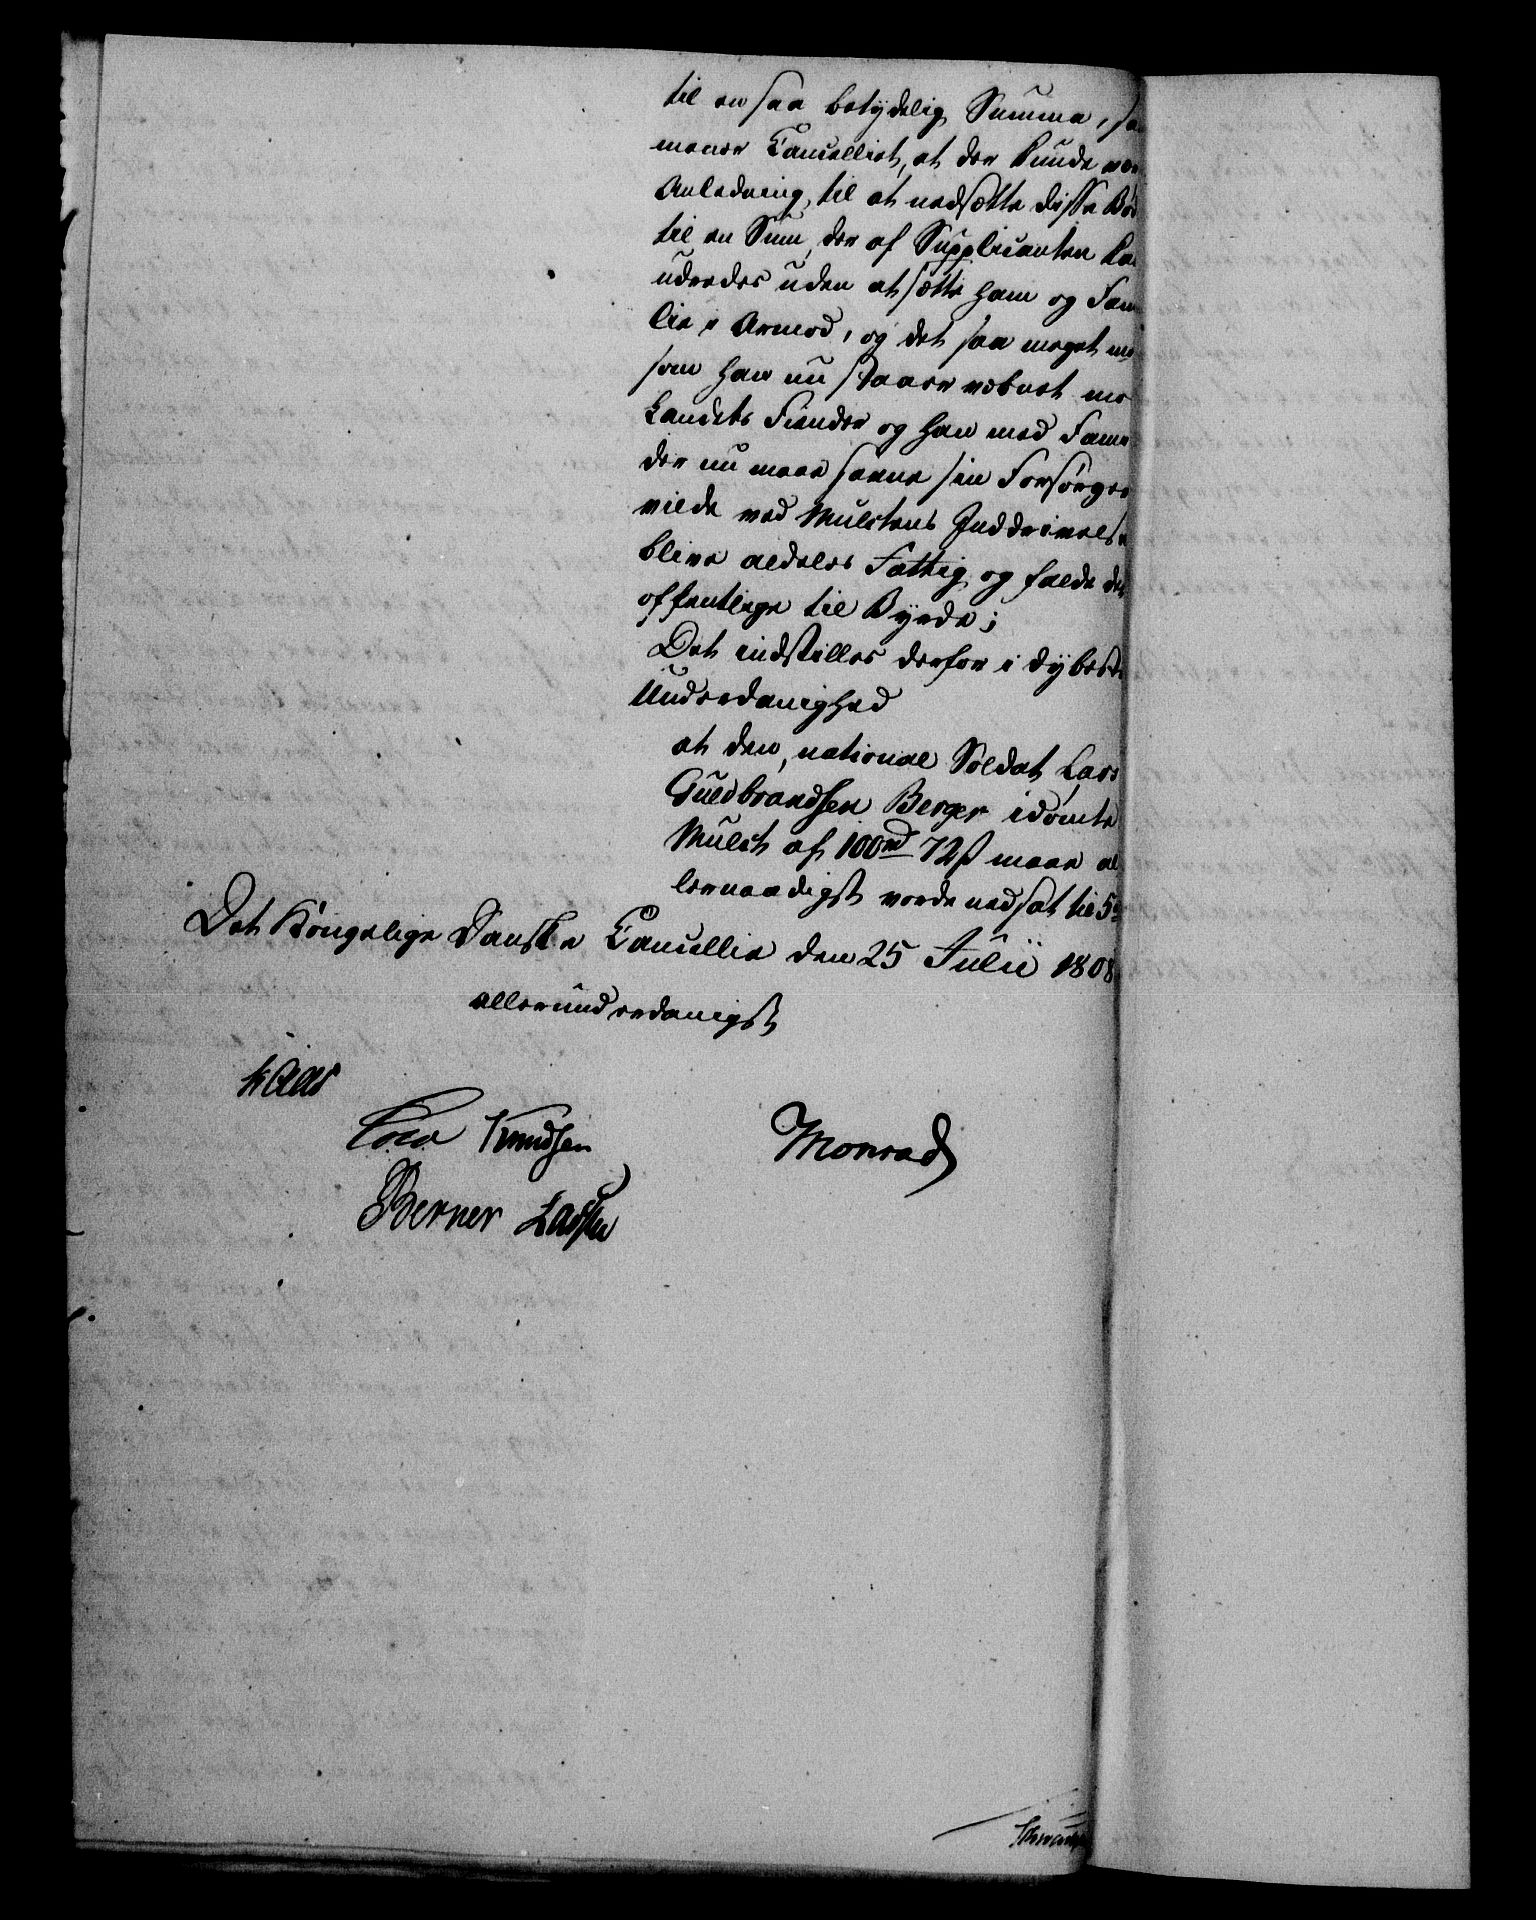 til en saa betydelig Summa, saa
mener Cancelliet, at der kunde være
Anledning til at nedsætte disse Bød
til en Sum, der af Supplicanten kan
udredes uden at sætte ham og Fami
lie i Armod, og det saa meget me
som han nu staaer væbnet mo
Landets Fiender og han med Fami
der nu maae savne sin Forsørger
vilde ved Mulctens Inddrivelse
blive aldeles Fattig og falde det
offentlige til Byrde;
Det indstilles derfor i dybeste
Underdanighed
at den, national Soldat Lars
Guldbrandsen Berger idømte
Mulct af 100rd 72 ß maae al
lernaadigst vorde nedsat til 5rd
Det Kongelige Danske Cancellie den 25 Julii 1808
allerunderdanigst
Kaas
Cold Knudsen Monrad
Berner Lassen